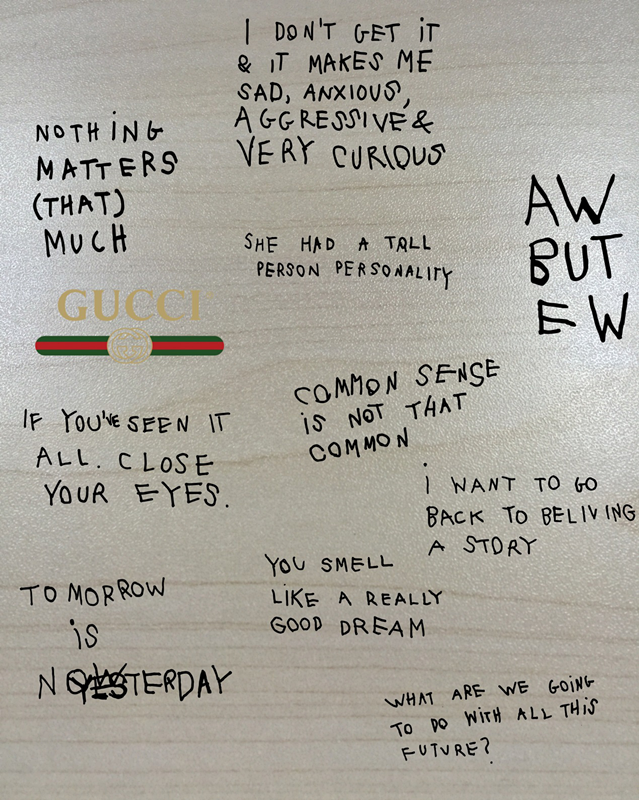 I DON'T GET IT
& IT MAKES ME
SAD, ANXIOUS,
AGGRESSIVE &
VERY CURIOUS
NOTHING
MATTERS
(THAT)
MUCH
AW
BUT
EW
SHE HAD A TALL
PERSON PERSONALITY
GUCCI
COMMON SENSE
IS NOT THAT
COMMON
IF YOU'VE SEEN IT
ALL. CLOSE
YOUR EYES.
I WANT TO GO
BACK TO BELIVING
A STORY
YOU SMELL
LIKE A REALLY
GOOD DREAM
TOMORROW
IS
NOW YESTERDAY
WHAT ARE WE GOING
TO DO WITH ALL THIS
FUTURE?